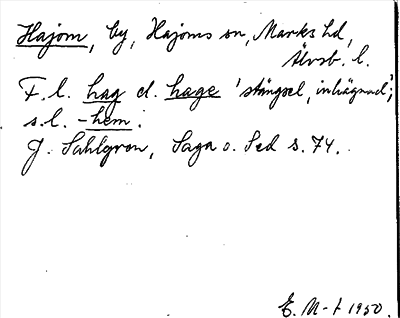 Hajom, by, Hajoms sn, Marks hd,
Älvsb. l.
F. l. hag el. hage 'stängsel, inhägnad';
s.l. -hem.
J. Sahlgren, Saga o. Sed s. 74.
E. M-t 1950.